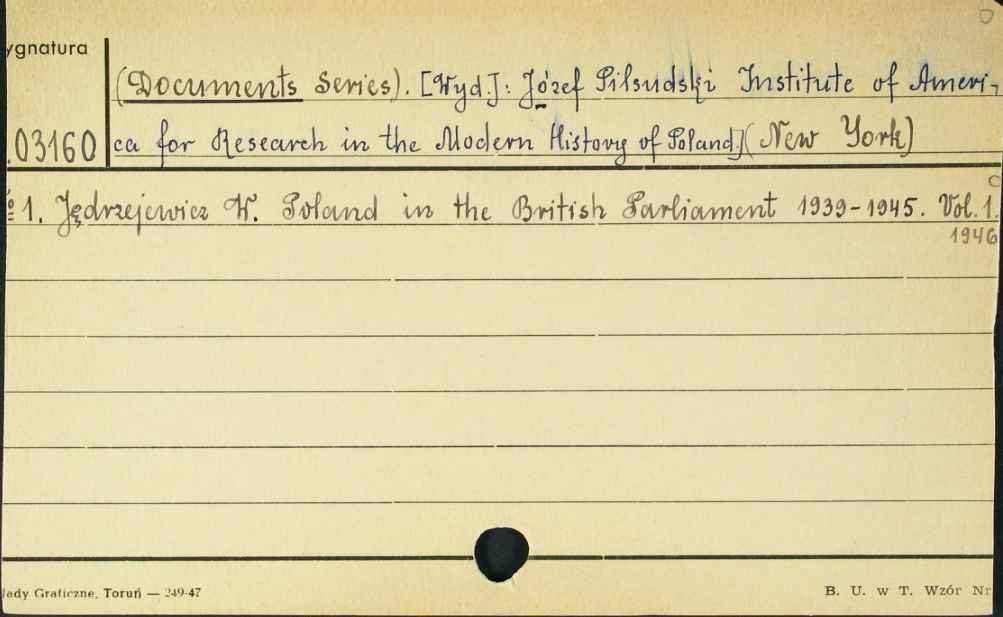 ygnatura
(Documents Series). [Wyd.]: Józef Piłsudski Institute of Ameri-
.03160 ca for Research in the Modern History of Poland.] (New York)
№ 1. Jędrzejewicz W. Poland in the British Parliament 1939-1945. Vol. 1.
1946
łady Graficzne, Toruń — 249-47
B. U. w T. Wzór Nr